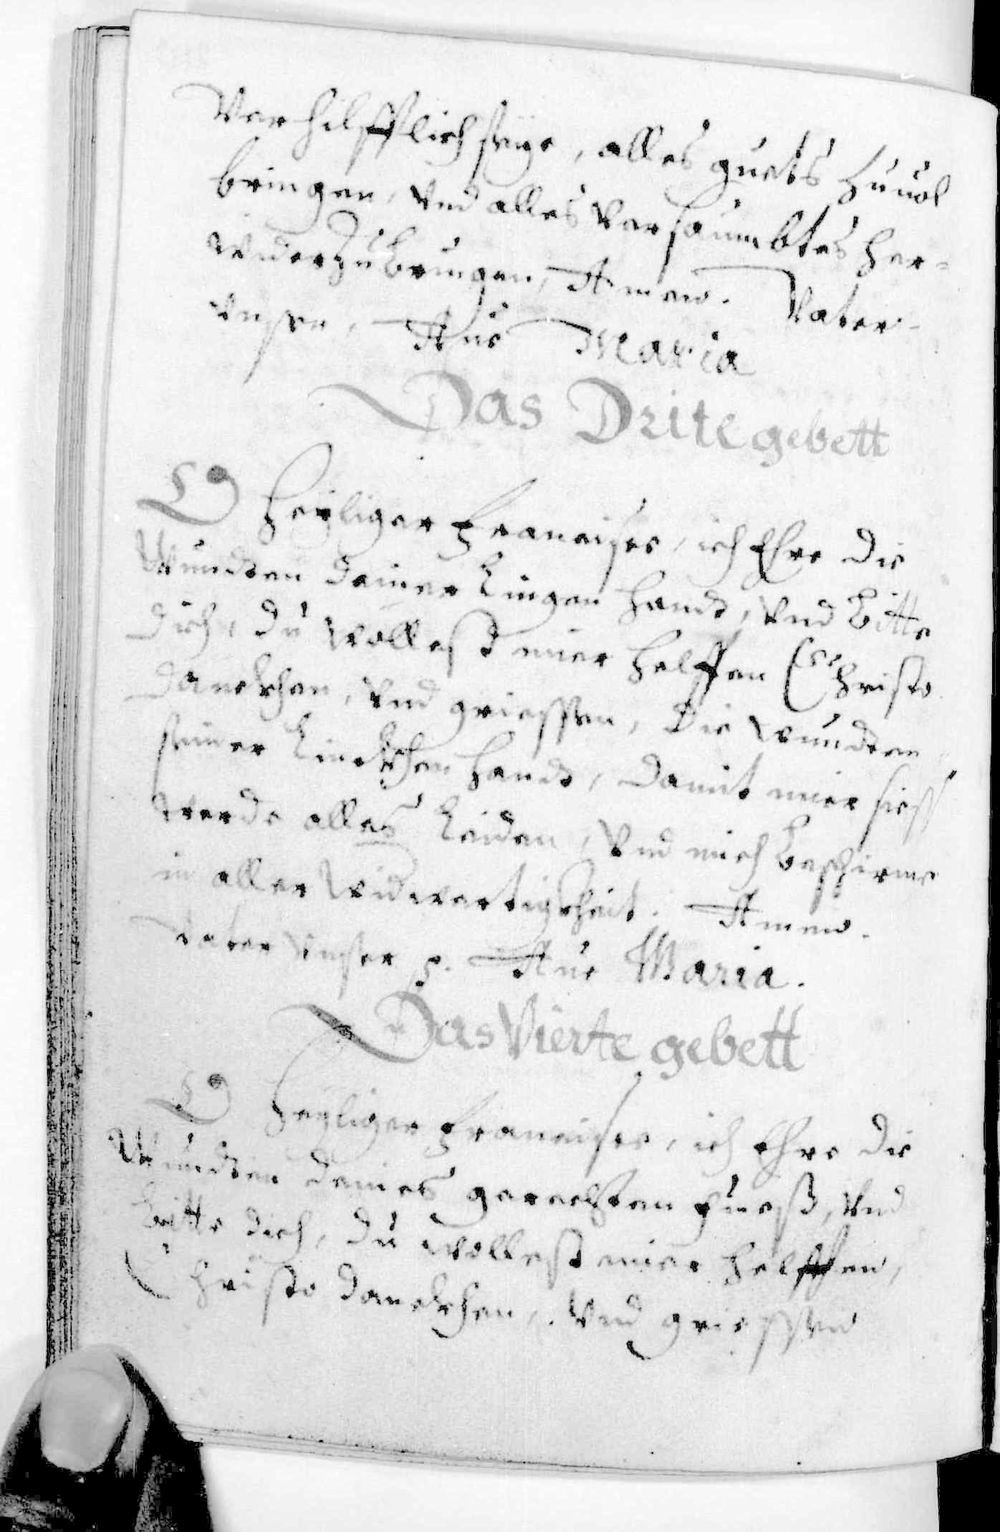 Verhilfflich seye, alles guets zuuol
bringen, vnd alles Versaumbtes her-
widerzubringen, Amen. Vater-
vnser, Aue Maria
Das Drite gebett
O Heyliger Francisce, ich Ehre die
Wundten deiner Lingen handt, vnd bitte
dich, du wollest mier helffen Christo
danckhen, vnd griessen, die wundten
seiner Linckhen handt, damit mier siess
werde alles Leiden, vnd mich beschirme
in aller Widwertigkheit. Amen.
Vater vnser p. Aue Maria.
Das Vierte gebett
O Heyliger Francisce, ich Ehre die
Wundten deines gerechten fuess, vnd
bitte dich, du wollest mier helffen,
Christo danckhen, vnd griessen